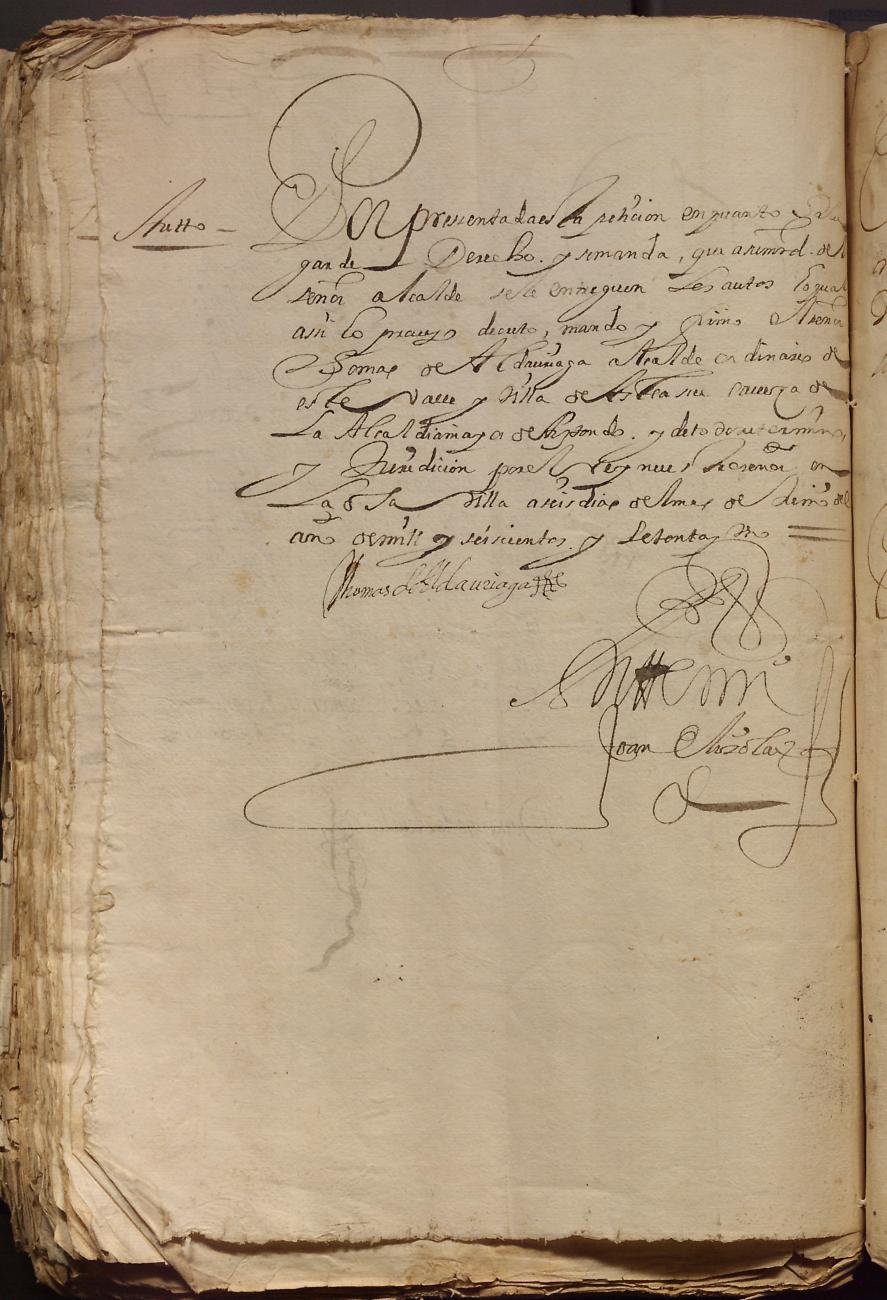 Autto
Por presentada esta peticion en quanto
gar de Derecho. y se manda, que a su md. del
señor alcalde se le entreguen los autos lo qual
assi lo proueyo decreto, mando y firmo el señor
Tomas de Aldauriaga alcalde ordinario de
este Valle y Villa de Asteasu caueza de
La Alcaldia mayor de Aiztondo. y de todo su termino,
y Jurisdicion por el Rey nuestro señor en
La dha Villa a seis dias del mes de del
año de mill y seiscientos y setenta
Thomas de Aldauriaga
Ante mi
Joan